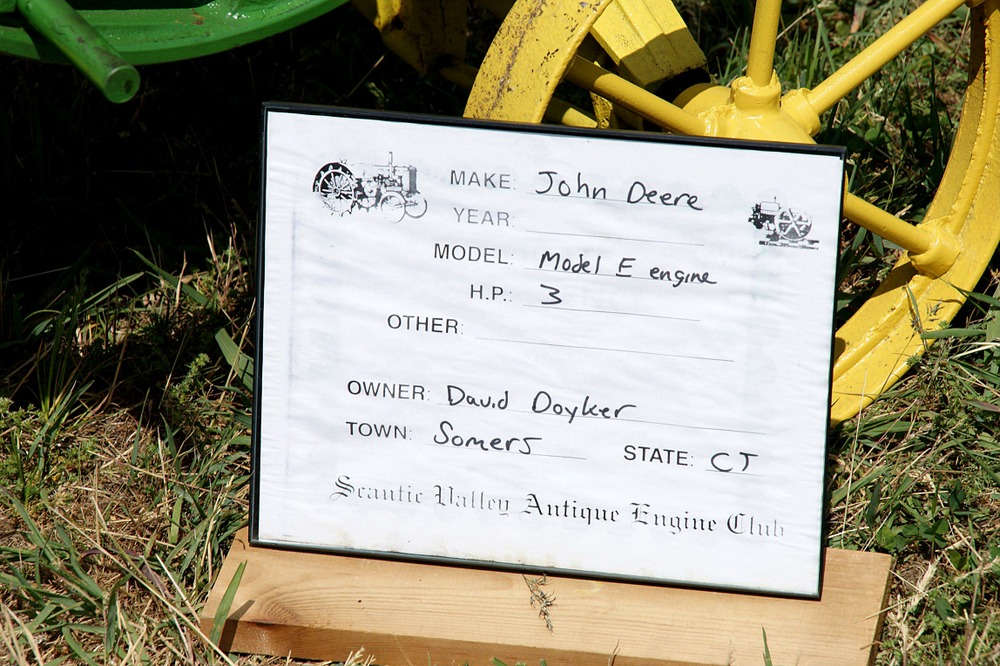 MAKE: John Deere
YEAR:
MODEL: Model E engine
H.P.: 3
OTHER:
OWNER: David Doyker
TOWN: Somers STATE: CT
Scantic Valley Antique Engine Club